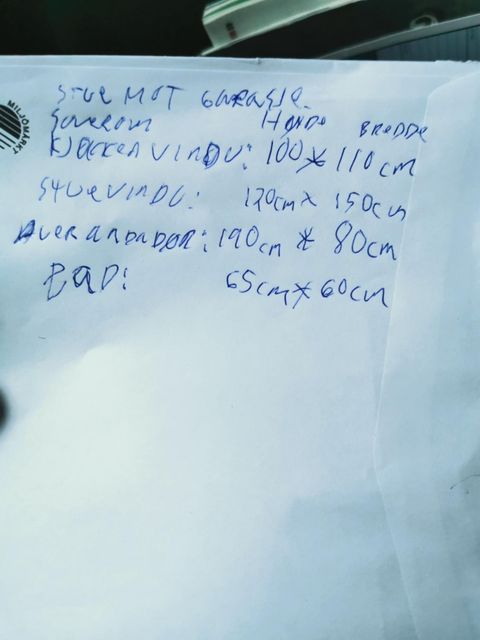 STUE MOT GARASJE.
Soverom HØYDE BREDDE
KJØKKENVINDU: 100 * 110 cm
STUEVINDU: 120cm x 150cm
VERANDADØR: 190cm * 80cm
BAD: 65cm * 60cm
MILJØMERKT